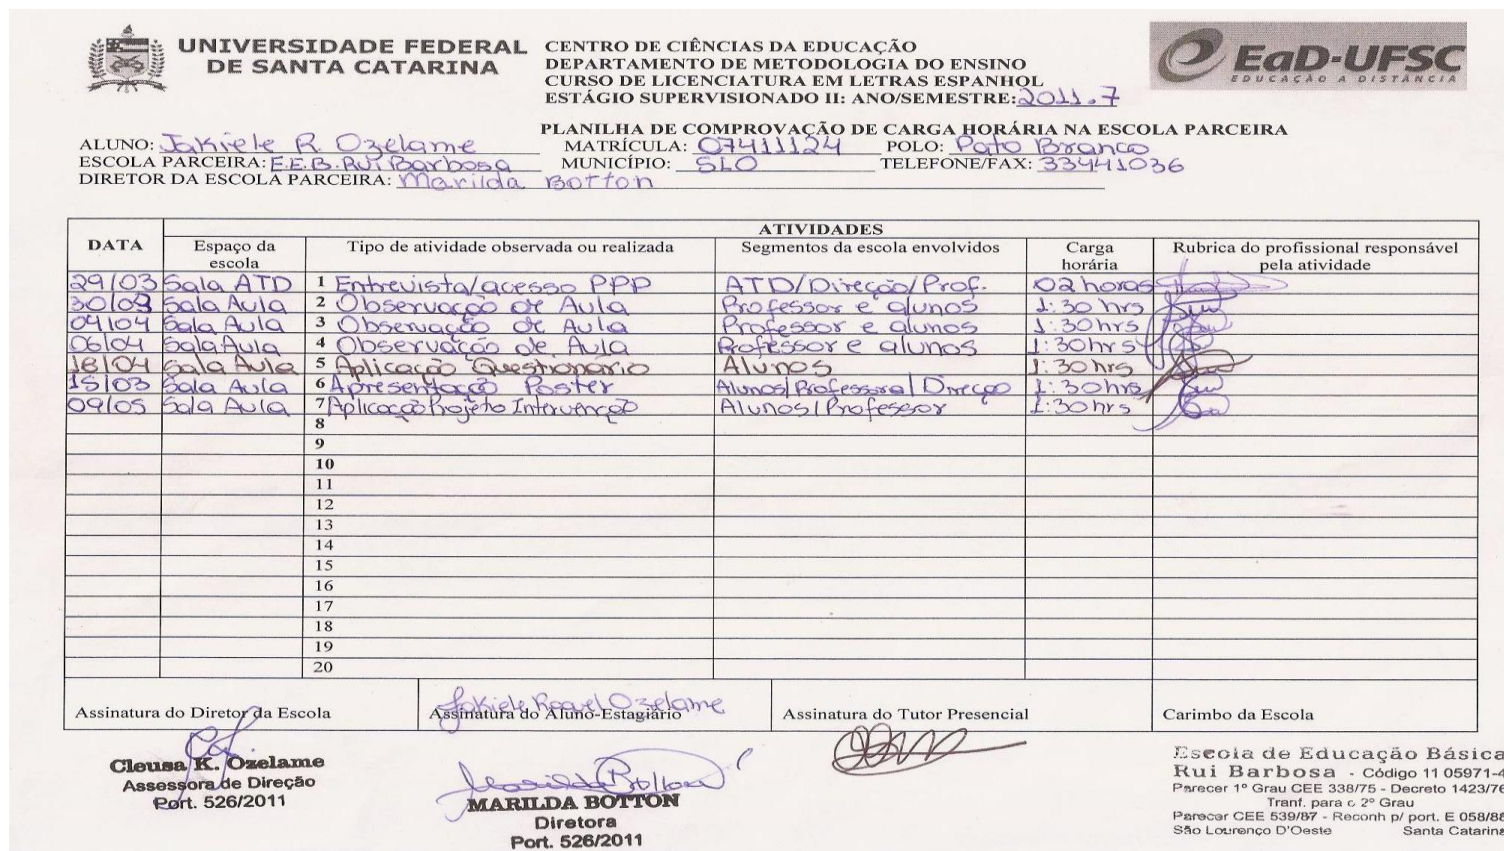 UNIVERSIDADE FEDERAL
DE SANTA CATARINA
CENTRO DE CIÊNCIAS DA EDUCAÇÃO
DEPARTAMENTO DE METODOLOGIA DO ENSINO
CURSO DE LICENCIATURA EM LETRAS ESPANHOL
ESTÁGIO SUPERVISIONADO II: ANO/SEMESTRE: 2011.7
EaD-UFSC
EDUCAÇÃO A DISTÂNCIA
PLANILHA DE COMPROVAÇÃO DE CARGA HORÁRIA NA ESCOLA PARCEIRA
ALUNO: Jakiele R. Ozelame MATRÍCULA: 07411124 POLO: Pato Branco
ESCOLA PARCEIRA: E.E.B. Rui Barbosa MUNICÍPIO: SLO TELEFONE/FAX: 33441036
DIRETOR DA ESCOLA PARCEIRA: Marilda Botton
ATIVIDADES
DATA Espaço da escola Tipo de atividade observada ou realizada Segmentos da escola envolvidos Carga horária Rubrica do profissional responsável pela atividade
29/03 Sala ATD 1 Entrevista/acesso PPP ATD/Direção/Prof. 02 horas
30/03 Sala Aula 2 Observação de Aula Professor e alunos 1:30 hrs
04/04 Sala Aula 3 Observação de Aula Professor e alunos 1:30hrs
06/04 Sala Aula 4 Observação de Aula Professor e alunos 1:30hrs
18/04 Sala Aula 5 Aplicação Questionário Alunos 1:30hrs
15/03 Sala Aula 6 Apresentação Poster Alunos/Professora/Direção 1:30hrs
09/05 Sala Aula 7 Aplicação Projeto Intervenção Alunos/Professor 1:30hrs
8
9
10
11
12
13
14
15
16
17
18
19
20
Jakiele Raquel Ozelame
Assinatura do Diretor da Escola Assinatura do Aluno-Estagiário Assinatura do Tutor Presencial Carimbo da Escola
Cleusa K. Ozelame
Assessora de Direção
Port. 526/2011
Marilda Botton
MARILDA BOTTON
Diretora
Port. 526/2011
Escola de Educação Básica
Rui Barbosa - Código 11 05971-4
Parecer 1º Grau CEE 338/75 - Decreto 1423/76
Tranf. para o 2º Grau
Parecer CEE 539/87 - Reconh p/ port. E 058/88
São Lourenço D'Oeste Santa Catarina